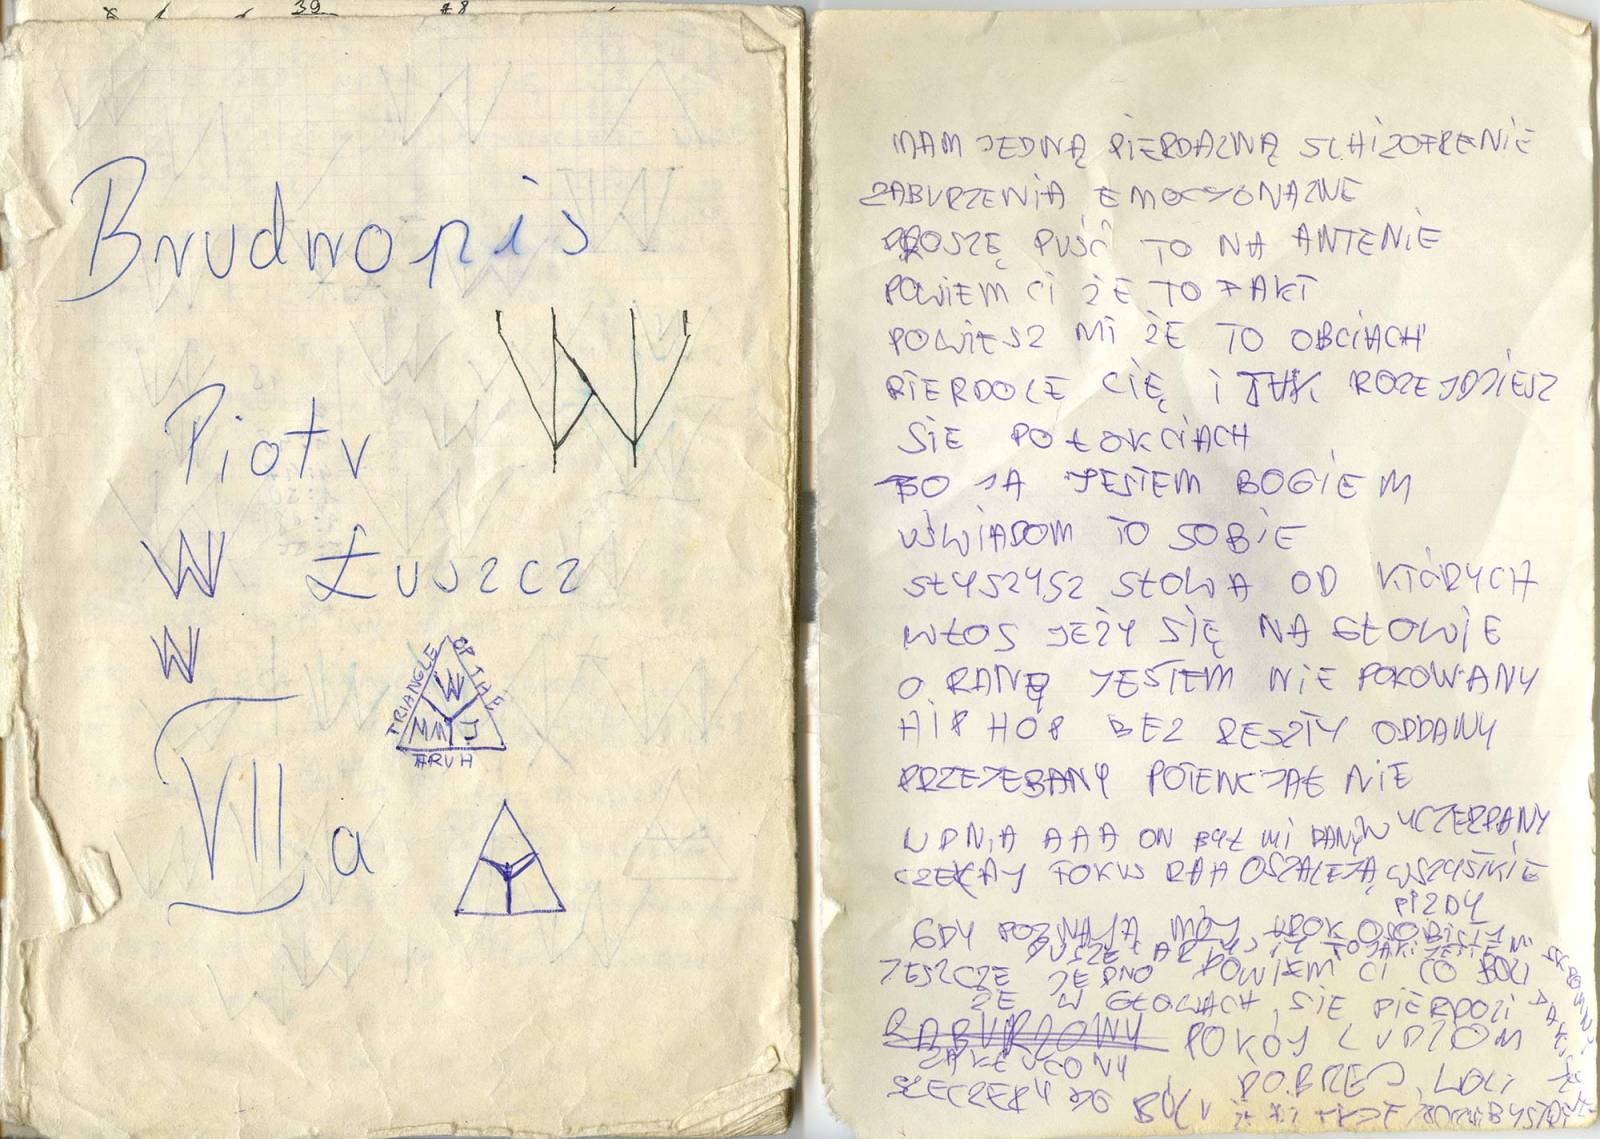 39
Brudnopis
W
Piotr
W Łuszcz
W
TRIANGLE OF THE
W
MM J
ARUH
VII a
MAM JEDNĄ PIERDALNĄ SCHIZOFRENIE
ZABURZENIA EMOCJONALNE
PROSZĘ PUŚĆ TO NA ANTENIE
POWIEM CI ŻE TO FAKT
POWIESZ MI ŻE TO OBCIACH
PIERDOLE CIĘ I TAK ROZEJDZIESZ
SIE PO ŁOKCIACH
BO JA JESTEM BOGIEM
UŚWIADOM TO SOBIE
SŁYSZYSZ SŁOWA OD KTÓRYCH
WŁOS JEŻY SIĘ NA GŁOWIE
O RANĘ JESTEM NIE POKOWANY
HIP HOP BEZ RESZTY ODDANY
PRZEJEBANY POTENCJAŁ NIE
UDNIA AAA ON BYŁ MI DANY W UCZERPANY
CZEKAJ FOKUS RAH OSZALEJĄ WSZYSTKIE
PIZDY
GDY POZNAJĄ MÓJ UROK OSOBISTY
DUSZĘ ARTYSTY TO JAKI JESTEM
JESZCZE JEDNO POWIEM CI CO BOLI
ŻE W GŁOWACH SIE PIERDOLI
POKÓJ LUDZIOM
ZAKŁUCONY
DOBREJ WOLI
SZCZERY DO BÓLU